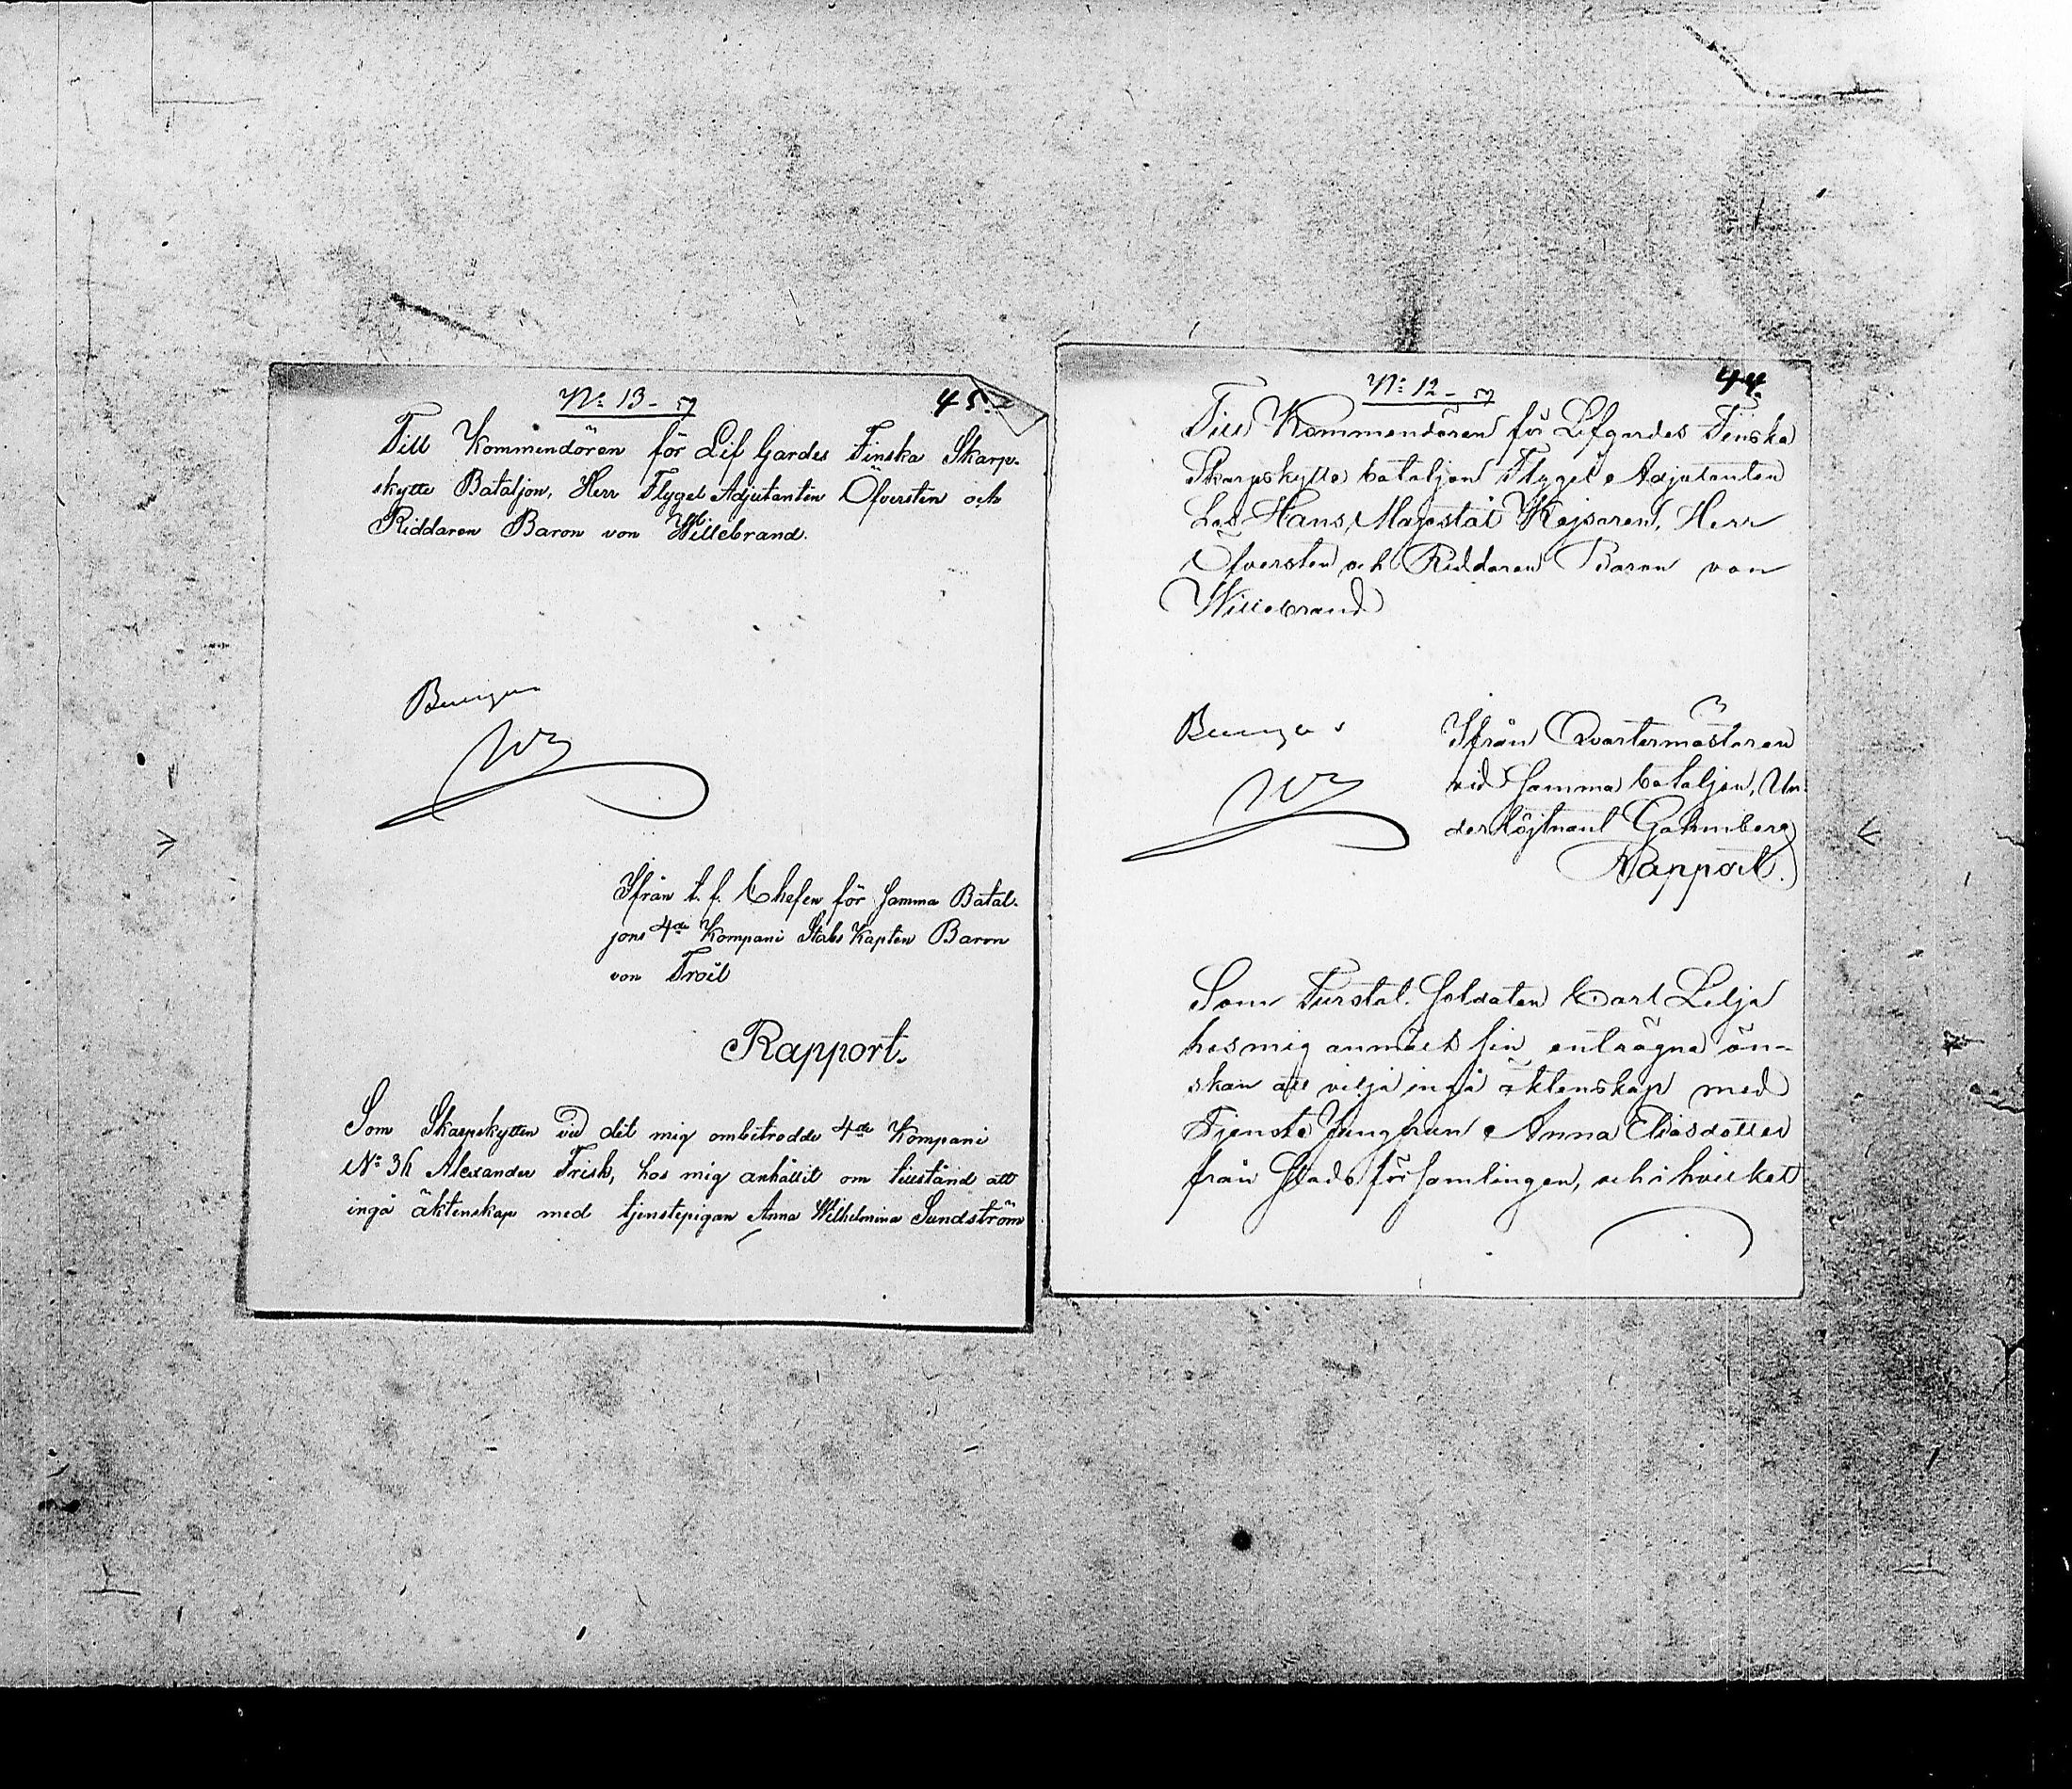 Nº 13 - 57
45.
Till Kommendören för Lif Gardes Finska Skarp-
skytte Bataljon, Herr Flygel Adjutanten Öfversten och
Riddaren Baron von Willebrand.
Ifrån t. f. Chefen för samma Batal-
jons 4de Kompani Stabs Kapten Baron
von Troil
Rapport.
Som Skarpskytten vid det mig ombetrodde 4de Kompani
Nº 36 Alexander Frisk, hos mig anhållit om tillstånd att
ingå äktenskap med tjenstepigan Anna Wilhelmina Sundström
Nº 12 - 57
44.
Till Kommendören för Lifgardes Finska
Skarpskytte bataljon Flygel Adjutanten
hos Hans Majestät Kejsaren, Herr
Öfversten och Riddaren Baron von
Willebrand
Ifrån Qvartermästaren
vid samma bataljon, Un-
derlöjtnant Gahmberg
Rapport.
Som Furstat. Soldaten Carl Lilja
hos mig anmält sin enträgna ön-
skan att vilja ingå äktenskap med
Tjenste Jungfrun Anna Eliasdotter
från Stads församlingen, och i hvilket